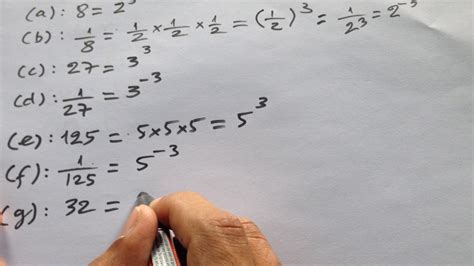 (a): 8 = 2³
(b): 1/8 = 1/2 × 1/2 × 1/2 = (1/2)³ = 1/2³ = 2⁻³
(c): 27 = 3³
(d): 1/27 = 3⁻³
(e): 125 = 5×5×5 = 5³
(f): 1/125 = 5⁻³
(g): 32 =